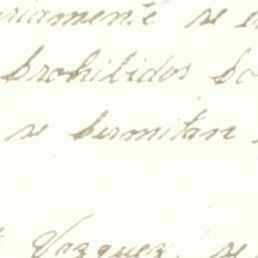 riamente se
prohibidos
se permitan
Vazquez, se